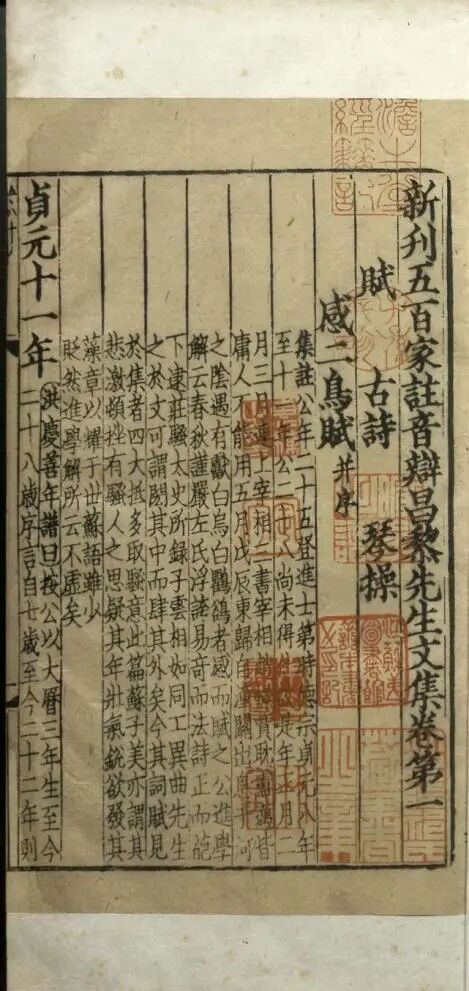 新刊五百家註音辯昌黎先生文集卷第一
賦 古詩 琴操
感二鳥賦并序
集註公年二十五登進士第時德宗貞元八年
至十一年公二十八尚未得仕是年正月二
月三月連上宰相三書宰相趙憬賈耽盧邁皆
庸人不能用五月戊辰東歸自潼關出息于河
之陰遇有獻白烏白鸜鵒者感而賦之公進學
解云春秋謹嚴左氏浮誇易奇而法詩正而葩
下逮莊騷太史所録子雲相如同工異曲先生
之於文可謂閎其中而肆其外矣今其詞賦見
於集者四大抵多取騷意此篇蘇子美亦謂其
悲激頓挫有騷人之思疑其年壯氣銳欲發其
藻章以耀于世蘇語雖少
貶然進學解所云不虛矣
貞元十一年 洪慶善年譜曰按公以大曆三年生至今
二十八歳序言自七歳至今二十二年則